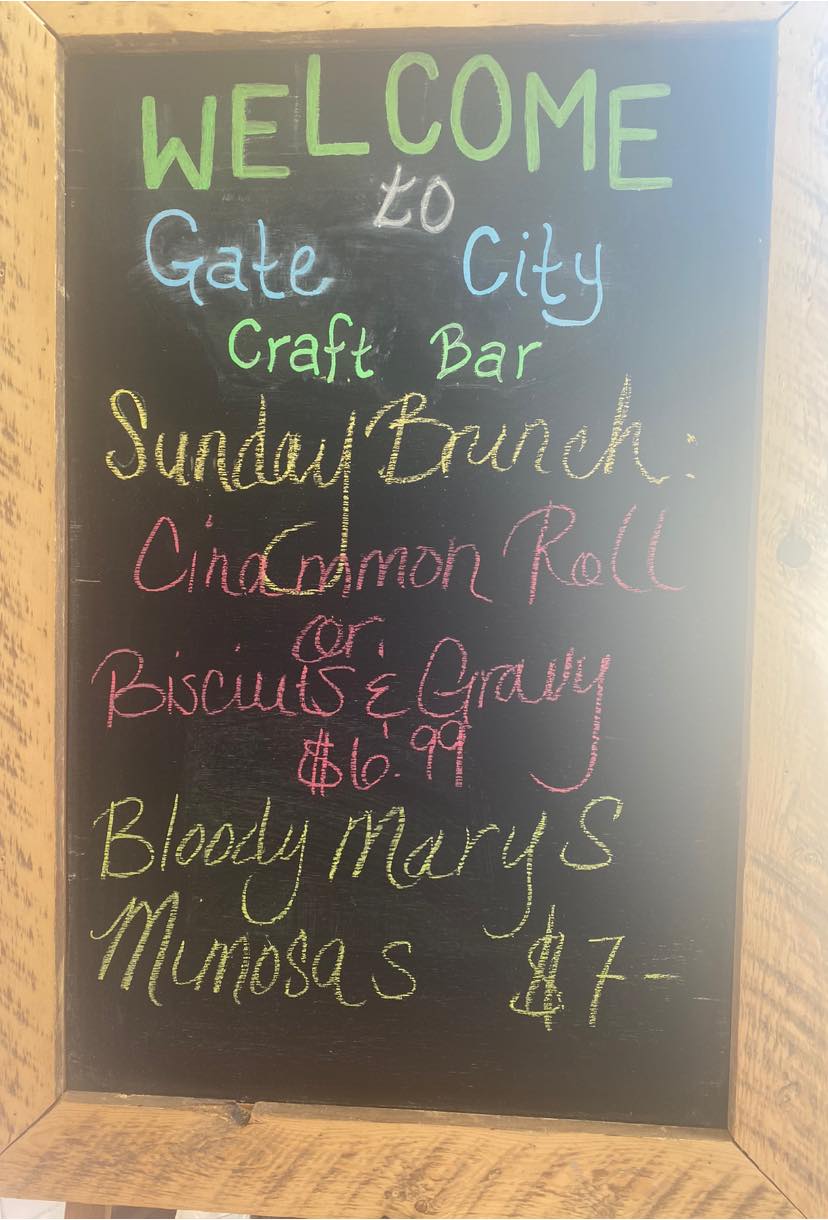 WELCOME
to
Gate City
Craft Bar
Sunday Brunch:
Cinammon Roll
or
Bisciuts & Gravy
$6.99
Bloody Marys
Mimosas $7-